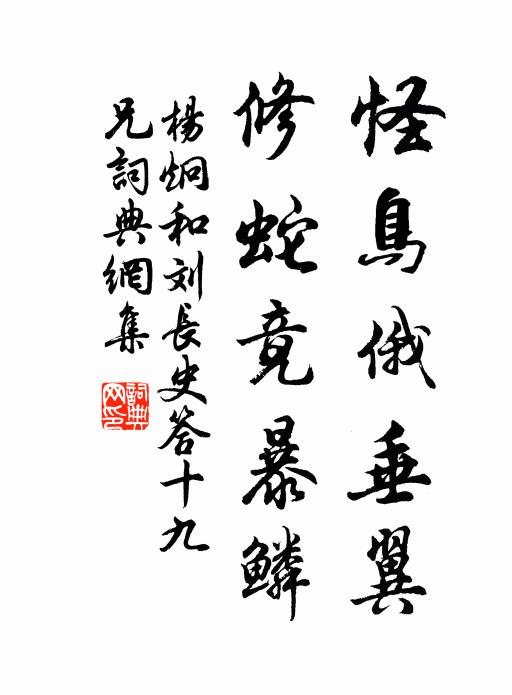 怪鳥俄垂翼
修蛇竟暴鱗
楊炯和刘長史答十九
兄詞典網集
詞典
网印